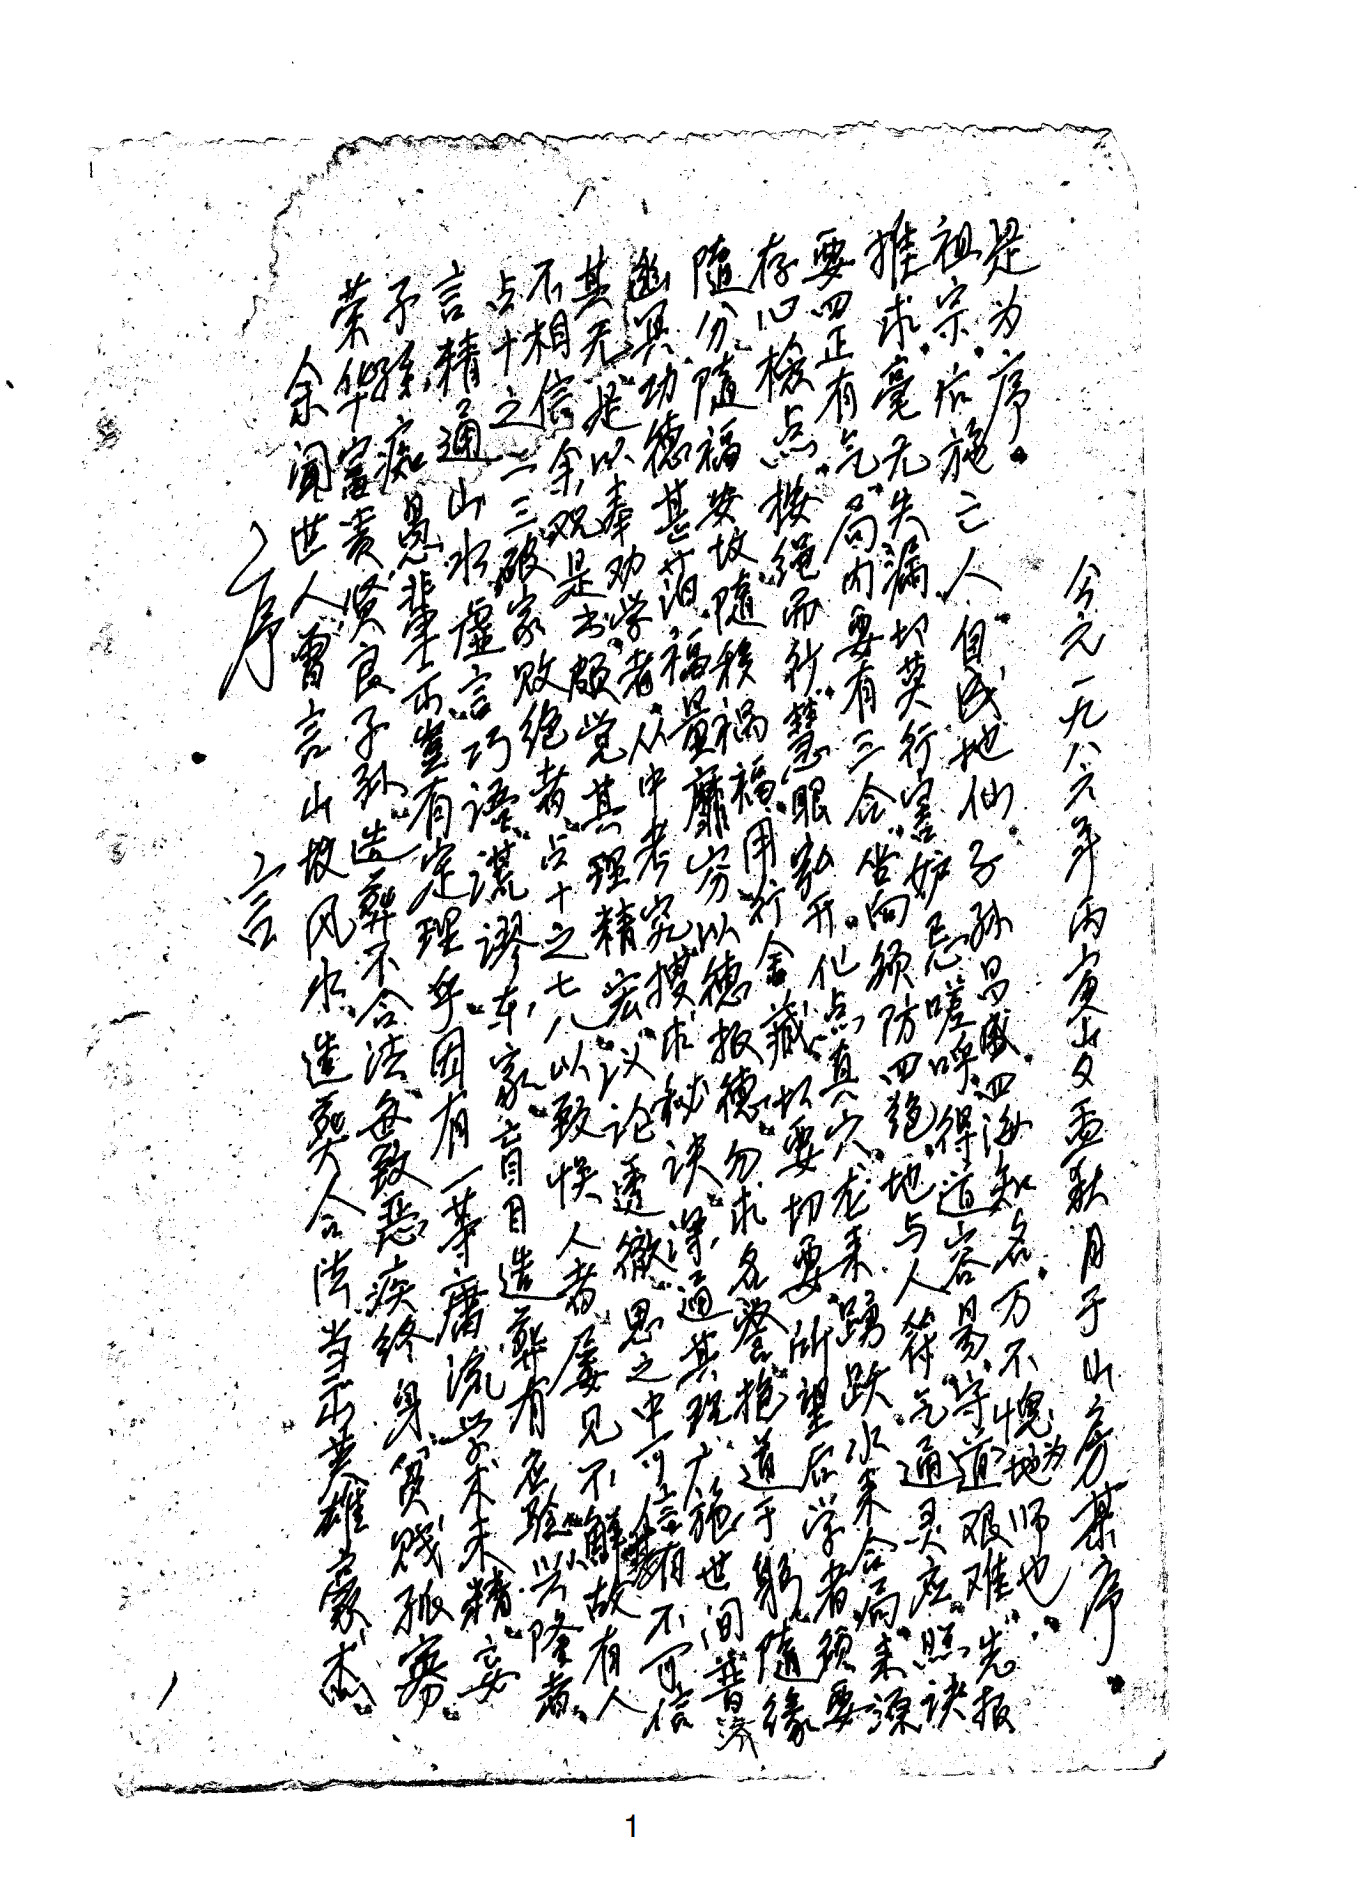 序言
余闻世人曾言山坟风水，造葬合法当出英雄豪杰，
荣华富贵，贤良子孙。造葬不合法每致恶疾终身，贫贱孤寡。
子孙痴愚辈出，岂有定理乎。因有一等庸流学术未精，妄
言精通山水，虚言巧语，谎谬东家，盲目造葬，有应验兴隆者，
占十之二三，破家败绝者，占十之七八，以致悮人者，屡见不鲜，故有人
不相信，余观是书，颇觉其理精宏，议论透徹，思之中可信其有，不可信
其无，是以奉劝学者，从中考究，搜求秘诀，深通其理，大施世间，普济
幽冥，功德甚，福量靡穷，以德报德，勿求名誉，抱道于躬，随缘
随分，随福安坟，随移祸福，用行舍藏，切要切要，所望后学者须要
存心检点，按绳而行，慧眼弘开。他点真穴，龙来踴跃，水来合局，来源
要四正有气，局内要有三合，坐向须防四绝，地与人符，气通灵应，照诀
推求，毫无失漏，切莫行害妒忌，嗟呼，得道容易，守道艰难，先报
祖宗，后施亡人，自成地仙，子孙昌盛，四海知名，万不愧为地师也。
是为序。
今元一九八六年丙寅岁孟秋月于山房某序。